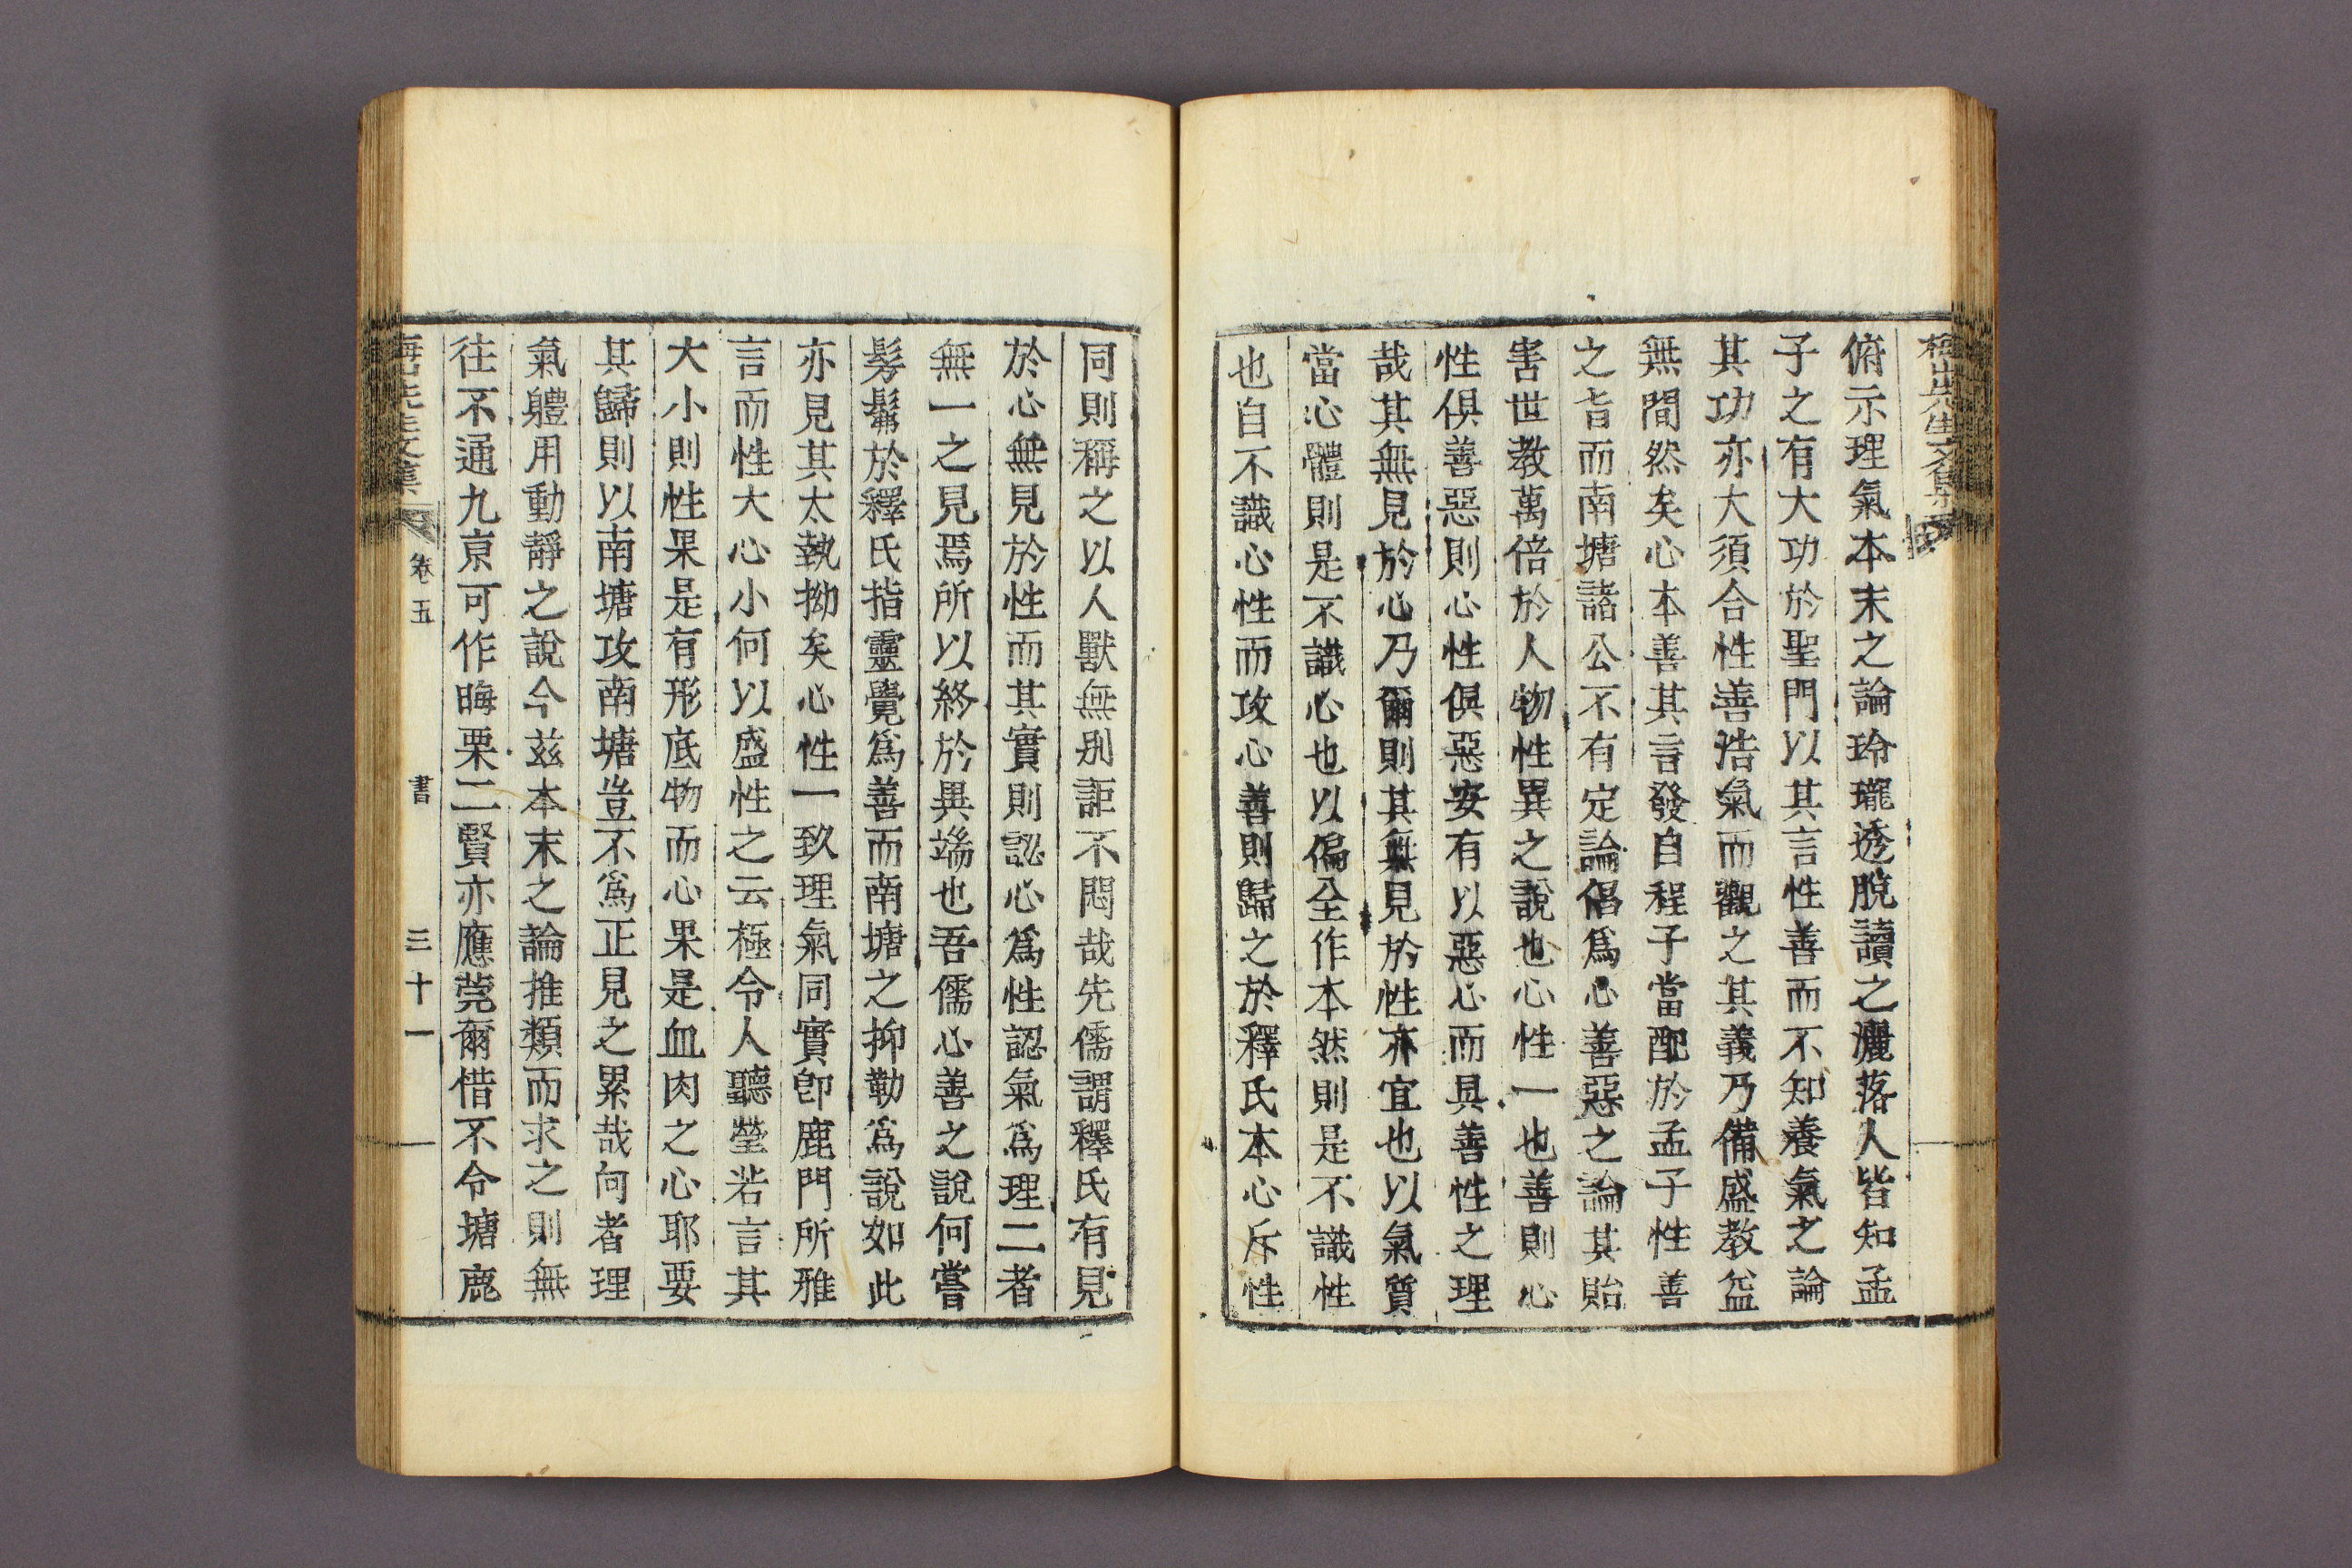 俯示理氣本末之論玲瓏透脫讀之灑落人皆知孟
子之有大功於聖門以其言性善而不知養氣之論
其功亦大須合性善浩氣而觀之其義乃備盛教益
無間然矣心本善其言發自程子當配於孟子性善
之旨而南塘諸公不有定論倡爲心善惡之論其貽
害世教萬倍於人物性異之說也心性一也善則心
性俱善惡則心性俱惡安有以惡心而具善性之理
哉其無見於心乃爾則其無見於性亦宜也以氣質
當心體則是不識心也以偏全作本然則是不識性
也自不識心性而攻心善則歸之於釋氏本心斥性
同則稱之以人獸無別詎不悶哉先儒謂釋氏有見
於心無見於性而其實則認心爲性認氣爲理二者
無一之見焉所以終於異端也吾儒心善之說何嘗
髣髴於釋氏指靈覺爲善而南塘之抑勒爲說如此
亦見其太執拗矣心性一致理氣同實卽鹿門所雅
言而性大心小何以盛性之云極令人聽瑩若言其
大小則性果是有形底物而心果是血肉之心耶要
其歸則以南塘攻南塘豈不爲正見之累哉向者理
氣軆用動靜之說今玆本末之論推類而求之則無
往不通九京可作晦栗二賢亦應莞爾惜不令塘鹿
先生文集 卷五 書 三十一